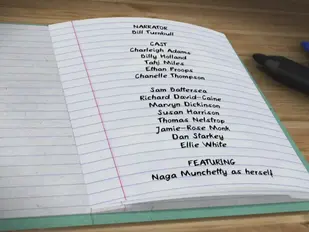 NARRATOR
Bill Turnbull
CAST
Charleigh Adams
Billy Holland
Tahj Miles
Ethan Proops
Chanelle Thompson
Sam Battersea
Richard David-Caine
Marvyn Dickinson
Susan Harrison
Thomas Nelstrop
Jamie-Rose Monk
Dan Starkey
Ellie White
FEATURING
Naga Munchetty as herself